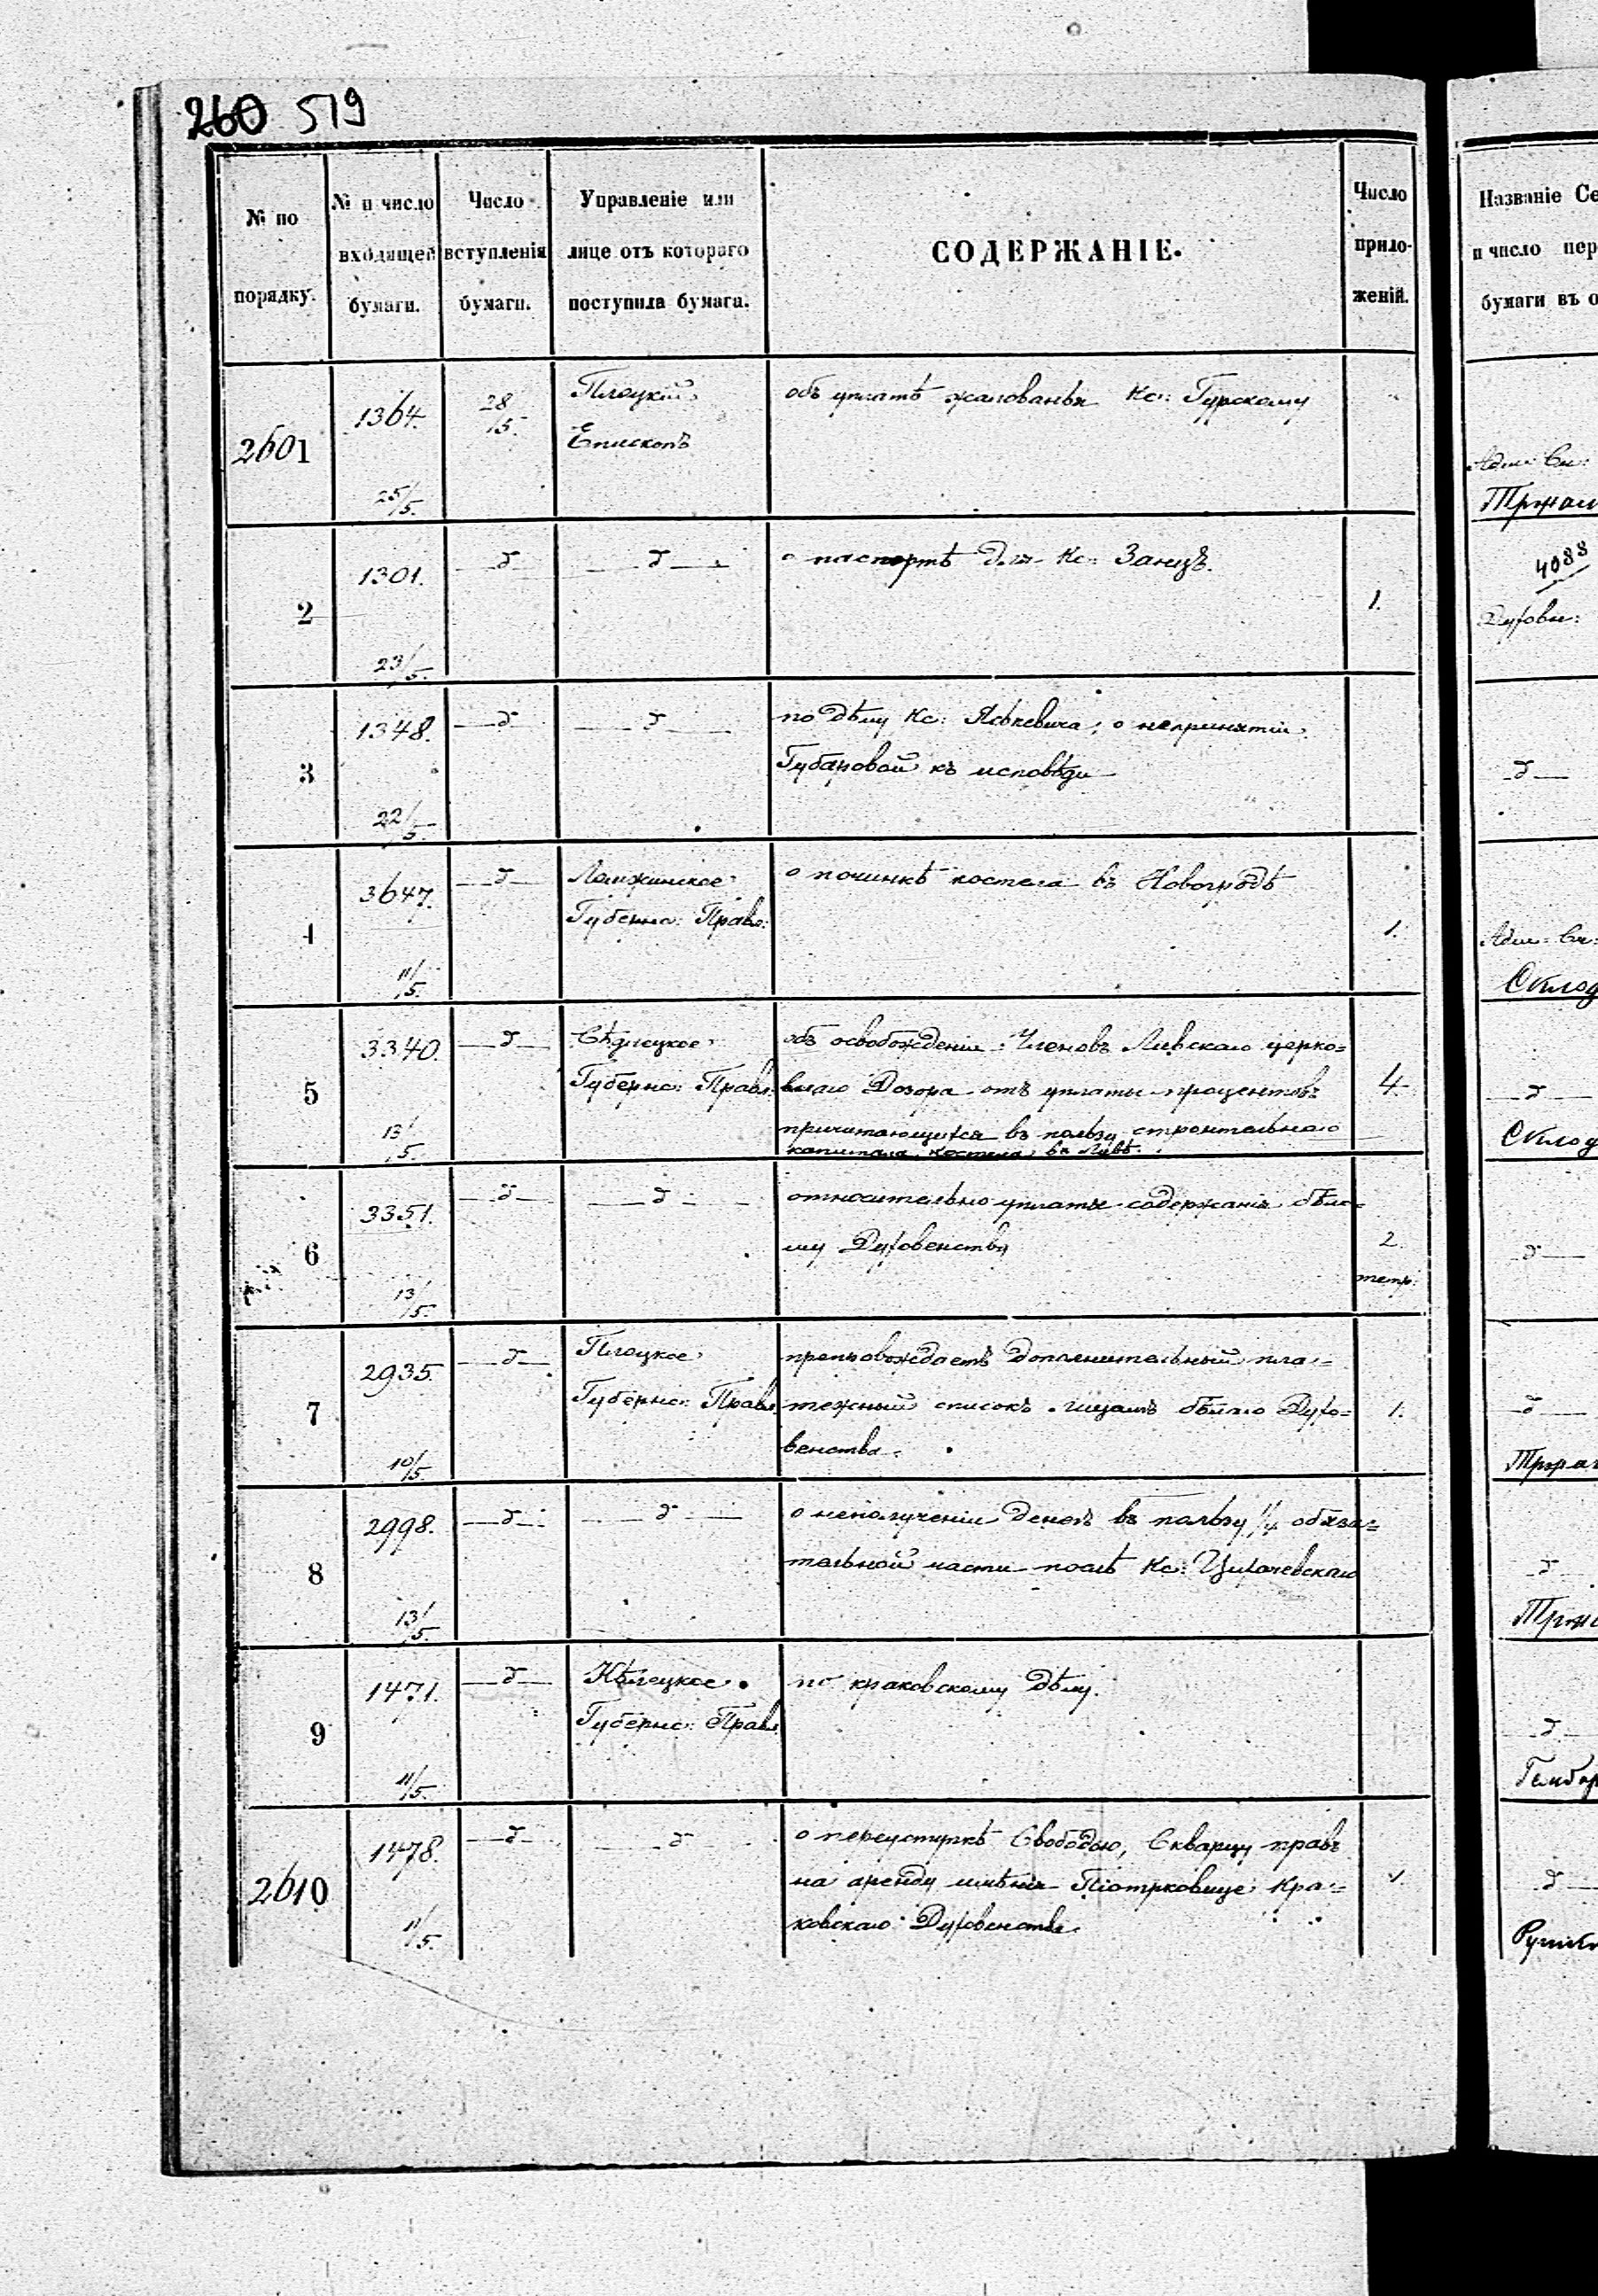 260 519
№ по порядку.
№ и число входящей бумаги.
Число вступленія бумаги.
Управленіе или лице отъ котораго поступила бумага.
СОДЕРЖАНІЕ.
Число приложеній.
Названіе Се
и число пер
бумаги въ о
2601
1364.
25/5.
28/5.
Плоцкій
Епископъ
объ уплатѣ жалованья Кс: Гурскому
Адм: Сл:
2
1301.
23/5.
—д—
—д—
о паспортѣ для Кс:
1.
4088
Духовн:
3
1348.
22/5.
—д—
—д—
по дѣлу Кс: о непринятіи
Губановой къ исповѣди
—д—
4
3647.
11/5.
—д—
Ломжинское
Губернс: Правл:
о починкѣ костела въ Новогродѣ
1.
Адм: Сл:
Склод
5
3340.
13/5.
—д—
Сѣдлецкое
Губернс: Правл:
объ освобожденіи Членовъ Ливскаго церко=
внаго Дозора отъ уплаты процентовъ
причитающихся въ пользу строительнаго
капитала костела въ Ливѣ.
4.
—д—
Склод
6
3351.
13/5.
—д—
—д—
относительно уплаты содержанія бѣло=
му Духовенству
2.
тетр.
—д—
7
2935.
10/5.
—д—
Плоцкое
Губернс: Правл.
препровождаетъ дополнительный пла=
тежный списокъ лицамъ бѣлаго Духо=
венства.
1.
—д—
8
2998.
13/5.
—д—
—д—
о неполученіи денегъ въ пользу 1/4 обяза=
тельной части послѣ Кс:
—д—
9
1471.
11/5.
—д—
Кѣлецкое
Губернс: Правл.
по краковскому дѣлу.
—д—
2610
1478.
11/5.
—д—
—д—
о переуступкѣ Свободою, Скварцу правъ
на аренду имѣнія Піотрковице Кра=
ковскаго Духовенства.
1.
—д—